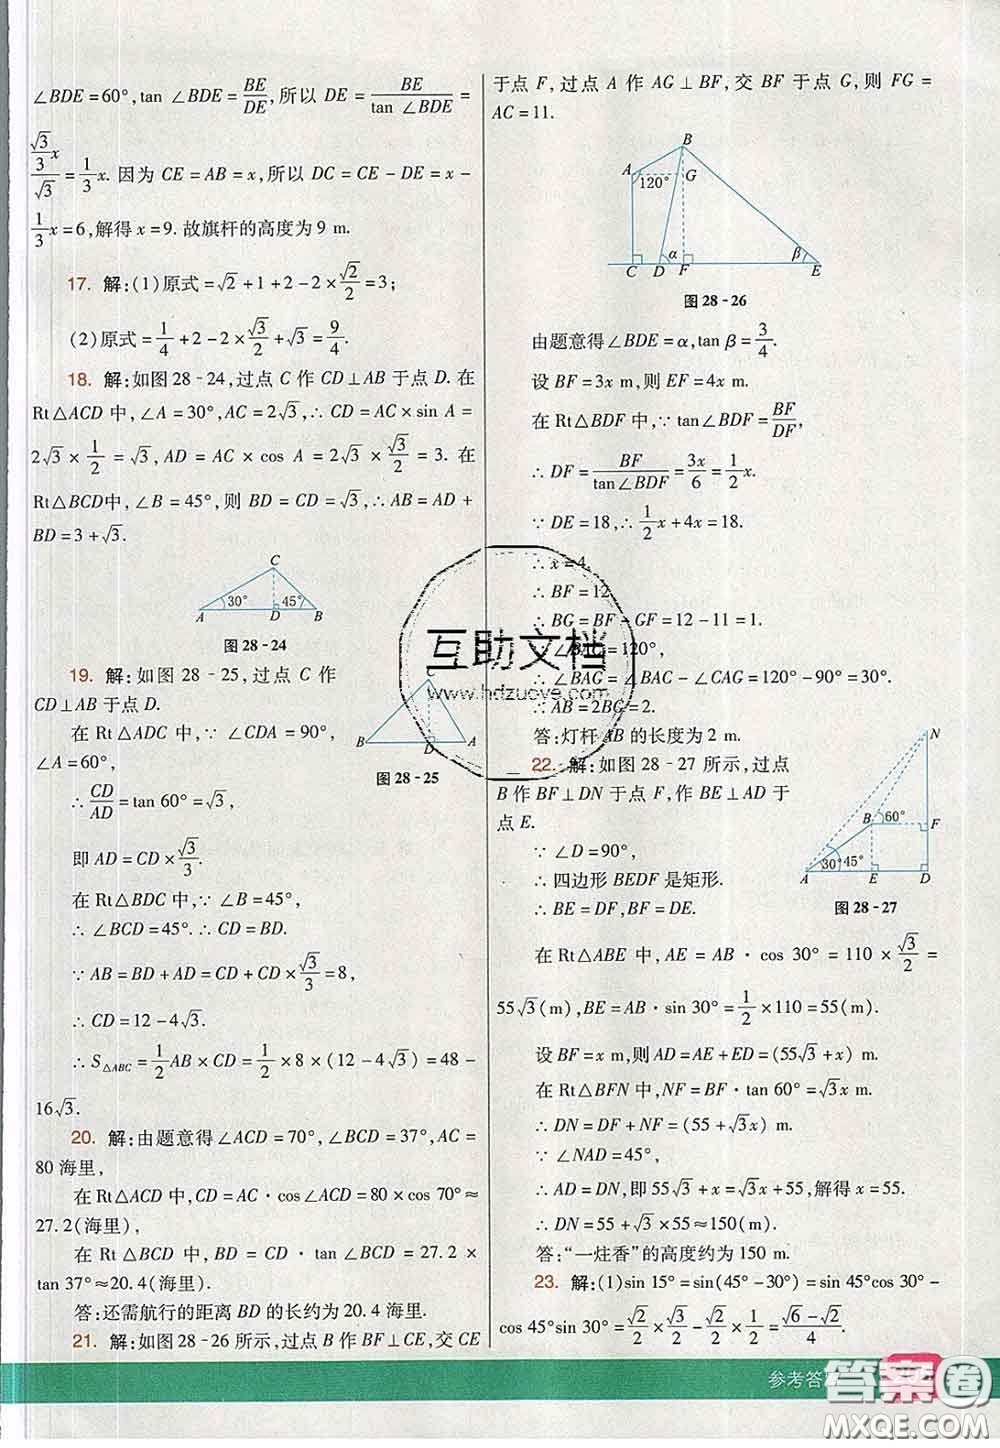 ∠BDE=60°,tan ∠BDE=BE/DE,所以 DE=BE/(tan ∠BDE)=
(√3/3 x)/√3=1/3 x. 因为 CE=AB=x,所以 DC=CE-DE=x-
1/3 x=6,解得 x=9. 故旗杆的高度为 9 m.
17. 解:(1)原式=√2+1+2-2×√2/2=3;
(2)原式=1/4+2-2×√3/2+√3=9/4.
18. 解:如图 28-24,过点 C 作 CD⊥AB 于点 D. 在
Rt△ACD 中,∠A=30°,AC=2√3,∴ CD=AC×sin A=
2√3×1/2=√3,AD=AC×cos A=2√3×√3/2=3. 在
Rt△BCD中,∠B=45°,则 BD=CD=√3,∴ AB=AD+
BD=3+√3.
C
30° 45°
A D B
图 28-24
19. 解:如图 28-25,过点 C 作
CD⊥AB 于点 D.
在 Rt△ADC 中,∵ ∠CDA=90°,
∠A=60°,
C
B D A
图 28-25
∴ CD/AD=tan 60°=√3,
即 AD=CD×√3/3.
在 Rt△BDC 中,∵ ∠B=45°,
∴ ∠BCD=45°. ∴ CD=BD.
∵ AB=BD+AD=CD+CD×√3/3=8,
∴ CD=12-4√3.
∴ S△ABC=1/2 AB×CD=1/2×8×(12-4√3)=48-
16√3.
20. 解:由题意得∠ACD=70°,∠BCD=37°,AC=
80 海里,
在 Rt△ACD 中,CD=AC·cos∠ACD=80×cos 70°≈
27.2(海里),
在 Rt△BCD 中,BD=CD·tan ∠BCD=27.2×
tan 37°≈20.4(海里).
答:还需航行的距离 BD 的长约为 20.4 海里.
21. 解:如图 28-26 所示,过点 B 作 BF⊥CE,交 CE
于点 F,过点 A 作 AG⊥BF,交 BF 于点 G,则 FG=
AC=11.
B
A 120° G
α β
C D F E
图 28-26
由题意得∠BDE=α,tan β=3/4.
设 BF=3x m,则 EF=4x m.
在 Rt△BDF 中,∵ tan∠BDF=BF/DF,
∴ DF=BF/(tan∠BDF)=3x/6=1/2 x.
∵ DE=18,∴ 1/2 x+4x=18.
∴ x=4.
∴ BF=12,
∴ BG=BF-GF=12-11=1.
∵ ∠BAC=120°,
∴ ∠BAG=∠BAC-∠CAG=120°-90°=30°.
∴ AB=2BG=2.
答:灯杆 AB 的长度为 2 m.
22. 解:如图 28-27 所示,过点
B 作 BF⊥DN 于点 F,作 BE⊥AD 于
点 E.
N
B 60° F
30° 45°
A E D
图 28-27
∵ ∠D=90°,
∴ 四边形 BEDF 是矩形.
∴ BE=DF,BF=DE.
在 Rt△ABE 中,AE=AB·cos 30°=110×√3/2=
55√3(m),BE=AB·sin 30°=1/2×110=55(m).
设 BF=x m,则 AD=AE+ED=(55√3+x) m.
在 Rt△BFN 中,NF=BF·tan 60°=√3x m.
∴ DN=DF+NF=(55+√3x) m.
∵ ∠NAD=45°,
∴ AD=DN,即 55√3+x=√3x+55,解得 x=55.
∴ DN=55+√3×55≈150(m).
答:“一炷香”的高度约为 150 m.
23. 解:(1)sin 15°=sin(45°-30°)=sin 45°cos 30°-
cos 45°sin 30°=√2/2×√3/2-√2/2×1/2=(√6-√2)/4.
参考答案
互助文档
www.hdzuoye.com
答案圈
MXQE.COM